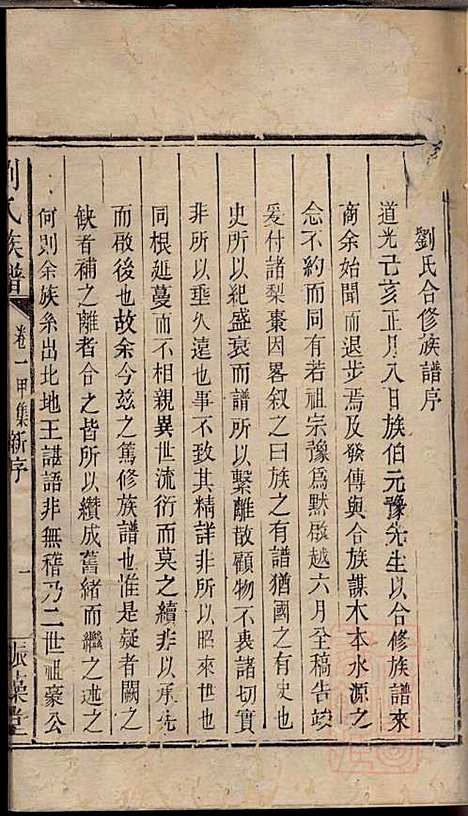 劉氏合修族譜序
道光己亥正月八日族伯元豫先生以合修族譜來
商余始聞而退步焉及發傳與合族謀木本水源之
念不約而同有若祖宗豫為默啟越六月全稿告竣
爰付諸梨棗因畧叙之曰族之有譜猶國之有史也
史所以紀盛衰而譜所以繫離散顧物不衷諸切實
非所以垂久遠也事不致其精詳非所以昭來世也
同根蜒蔓而不相親異世流衍而莫之續非以承先
而啟後也故余今兹之篤修族譜也惟是疑者闕之
缺者補之離者合之皆所以纘成舊緒而繼之述之
何則余族糸出北地王諶語非無稽乃二世祖豪公
劉氏族譜 卷一甲集新序 一 振藻堂